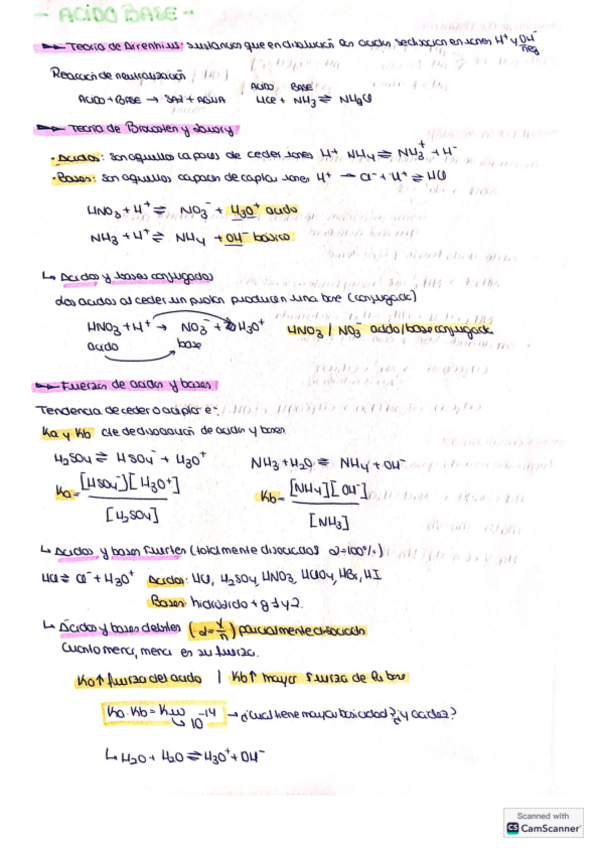 - ACIDO BASE -
Teoría de Arrenhius: sustancias que en disolución en acidos, se disocian en iones H⁺ y OH⁻
neg
Reacción de neutralización
ACIDO BASE
ACIDO + BASE → SAL + AGUA HCl + NH₃ ⇌ NH₄Cl
Teoría de Bronsten y Lowry
· Acidos: son aquellos capaces de ceder iones H⁺ NH₄ ⇌ NH₃⁺ + H⁻
· Bases: son aquellos capaces de captar iones H⁺ → Cl⁻ + H⁺ ⇌ HCl
HNO₃ + H⁺ ⇌ NO₃⁻ + H₃O⁺ acido
NH₃ + H⁺ ⇌ NH₄ + OH⁻ básico
↳ Acidos y bases conjugadas
dos acidos al ceder un protón producen una base (conjugada)
HNO₃ + H⁺ → NO₃⁻ + H₃O⁺ HNO₃ / NO₃⁻ acido/base conjugada
acido base
Fuerzas de acidos y bases
Tendencia de ceder o aceptar e⁻.
Ka y Kb cte de disociación de acidos y bases
H₂SO₄ ⇌ HSO₄⁻ + H₃O⁺ NH₃ + H₂O ⇌ NH₄ + OH⁻
Ka = [HSO₄⁻][H₃O⁺] Kb = [NH₄][OH⁻]
[H₂SO₄] [NH₃]
↳ Acidos y bases fuertes (totalmente disociados α=100%)
HCl ⇌ Cl⁻ + H₃O⁺ Acidos: HCl, H₂SO₄, HNO₃, HClO₄, HBr, HI
Bases: hidróxido + g 1 y 2.
↳ Ácidos y bases débiles (α = x/n) parcialmente disociado
Cuanto menor, menor es su fuerza.
Ka↑ fuerza del acido | Kb↑ mayor fuerza de la base
Ka · Kb = Kw → ¿cual tiene mayor basicidad? ¿y acidez?
10⁻¹⁴
↳ H₂O + H₂O ⇌ H₃O⁺ + OH⁻
Scanned with
CS CamScanner